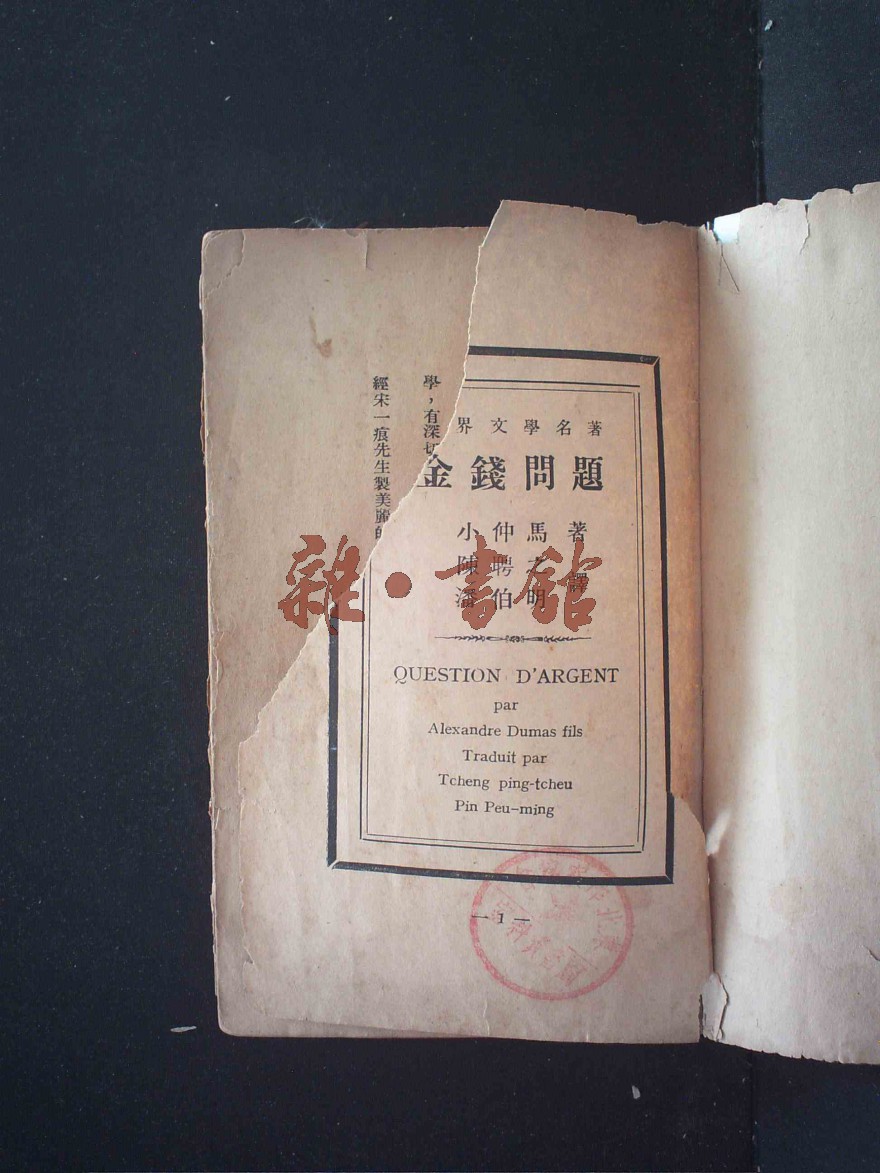 界文學名著
金錢問題
小仲馬 著
陳聘之
潘伯明 譯
QUESTION D'ARGENT
par
Alexandre Dumas fils
Traduit par
Tcheng ping-tcheu
Pin Peu-ming
— 1 —
學,有深切
經宋一痕先生製美麗的
雜·書館